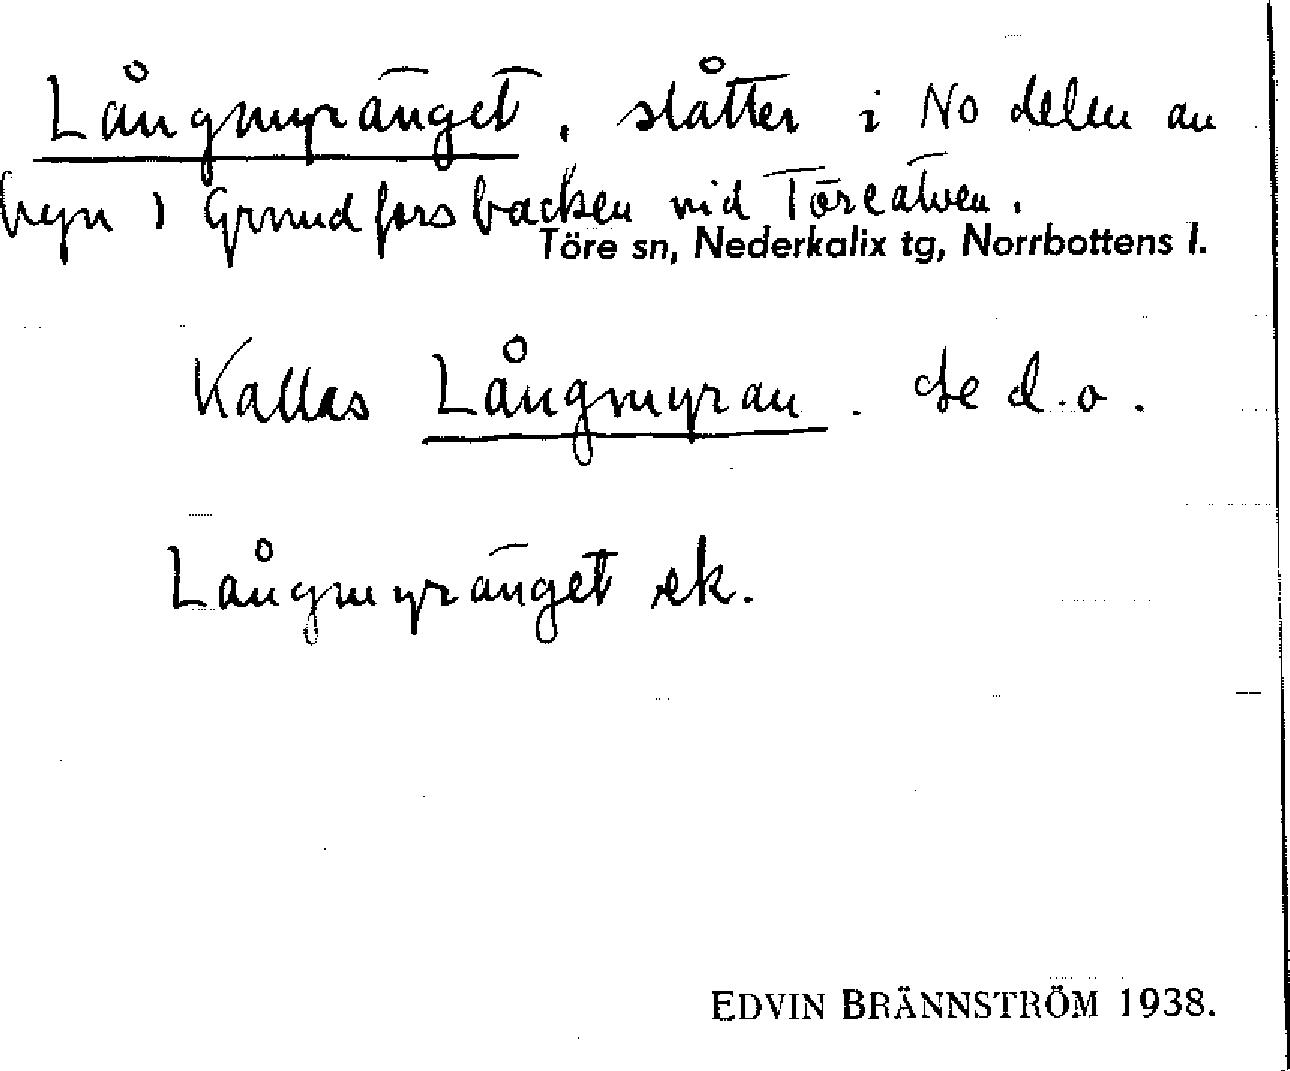 Långmyränget, slåtter i NO delen av
byn i Grundforsbacken vid Töreälven.
Töre sn, Nederkalix tg, Norrbottens l.
Kallas Långmyran. Se d.o.
Långmyränget ek.
EDVIN BRÄNNSTRÖM 1938.